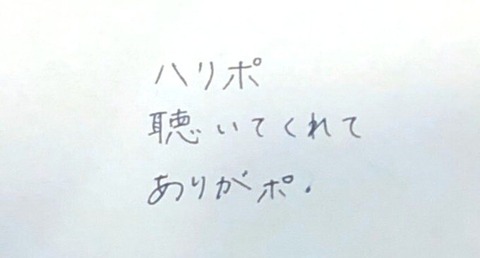 ハリポ
聴いてくれて
ありがポ.